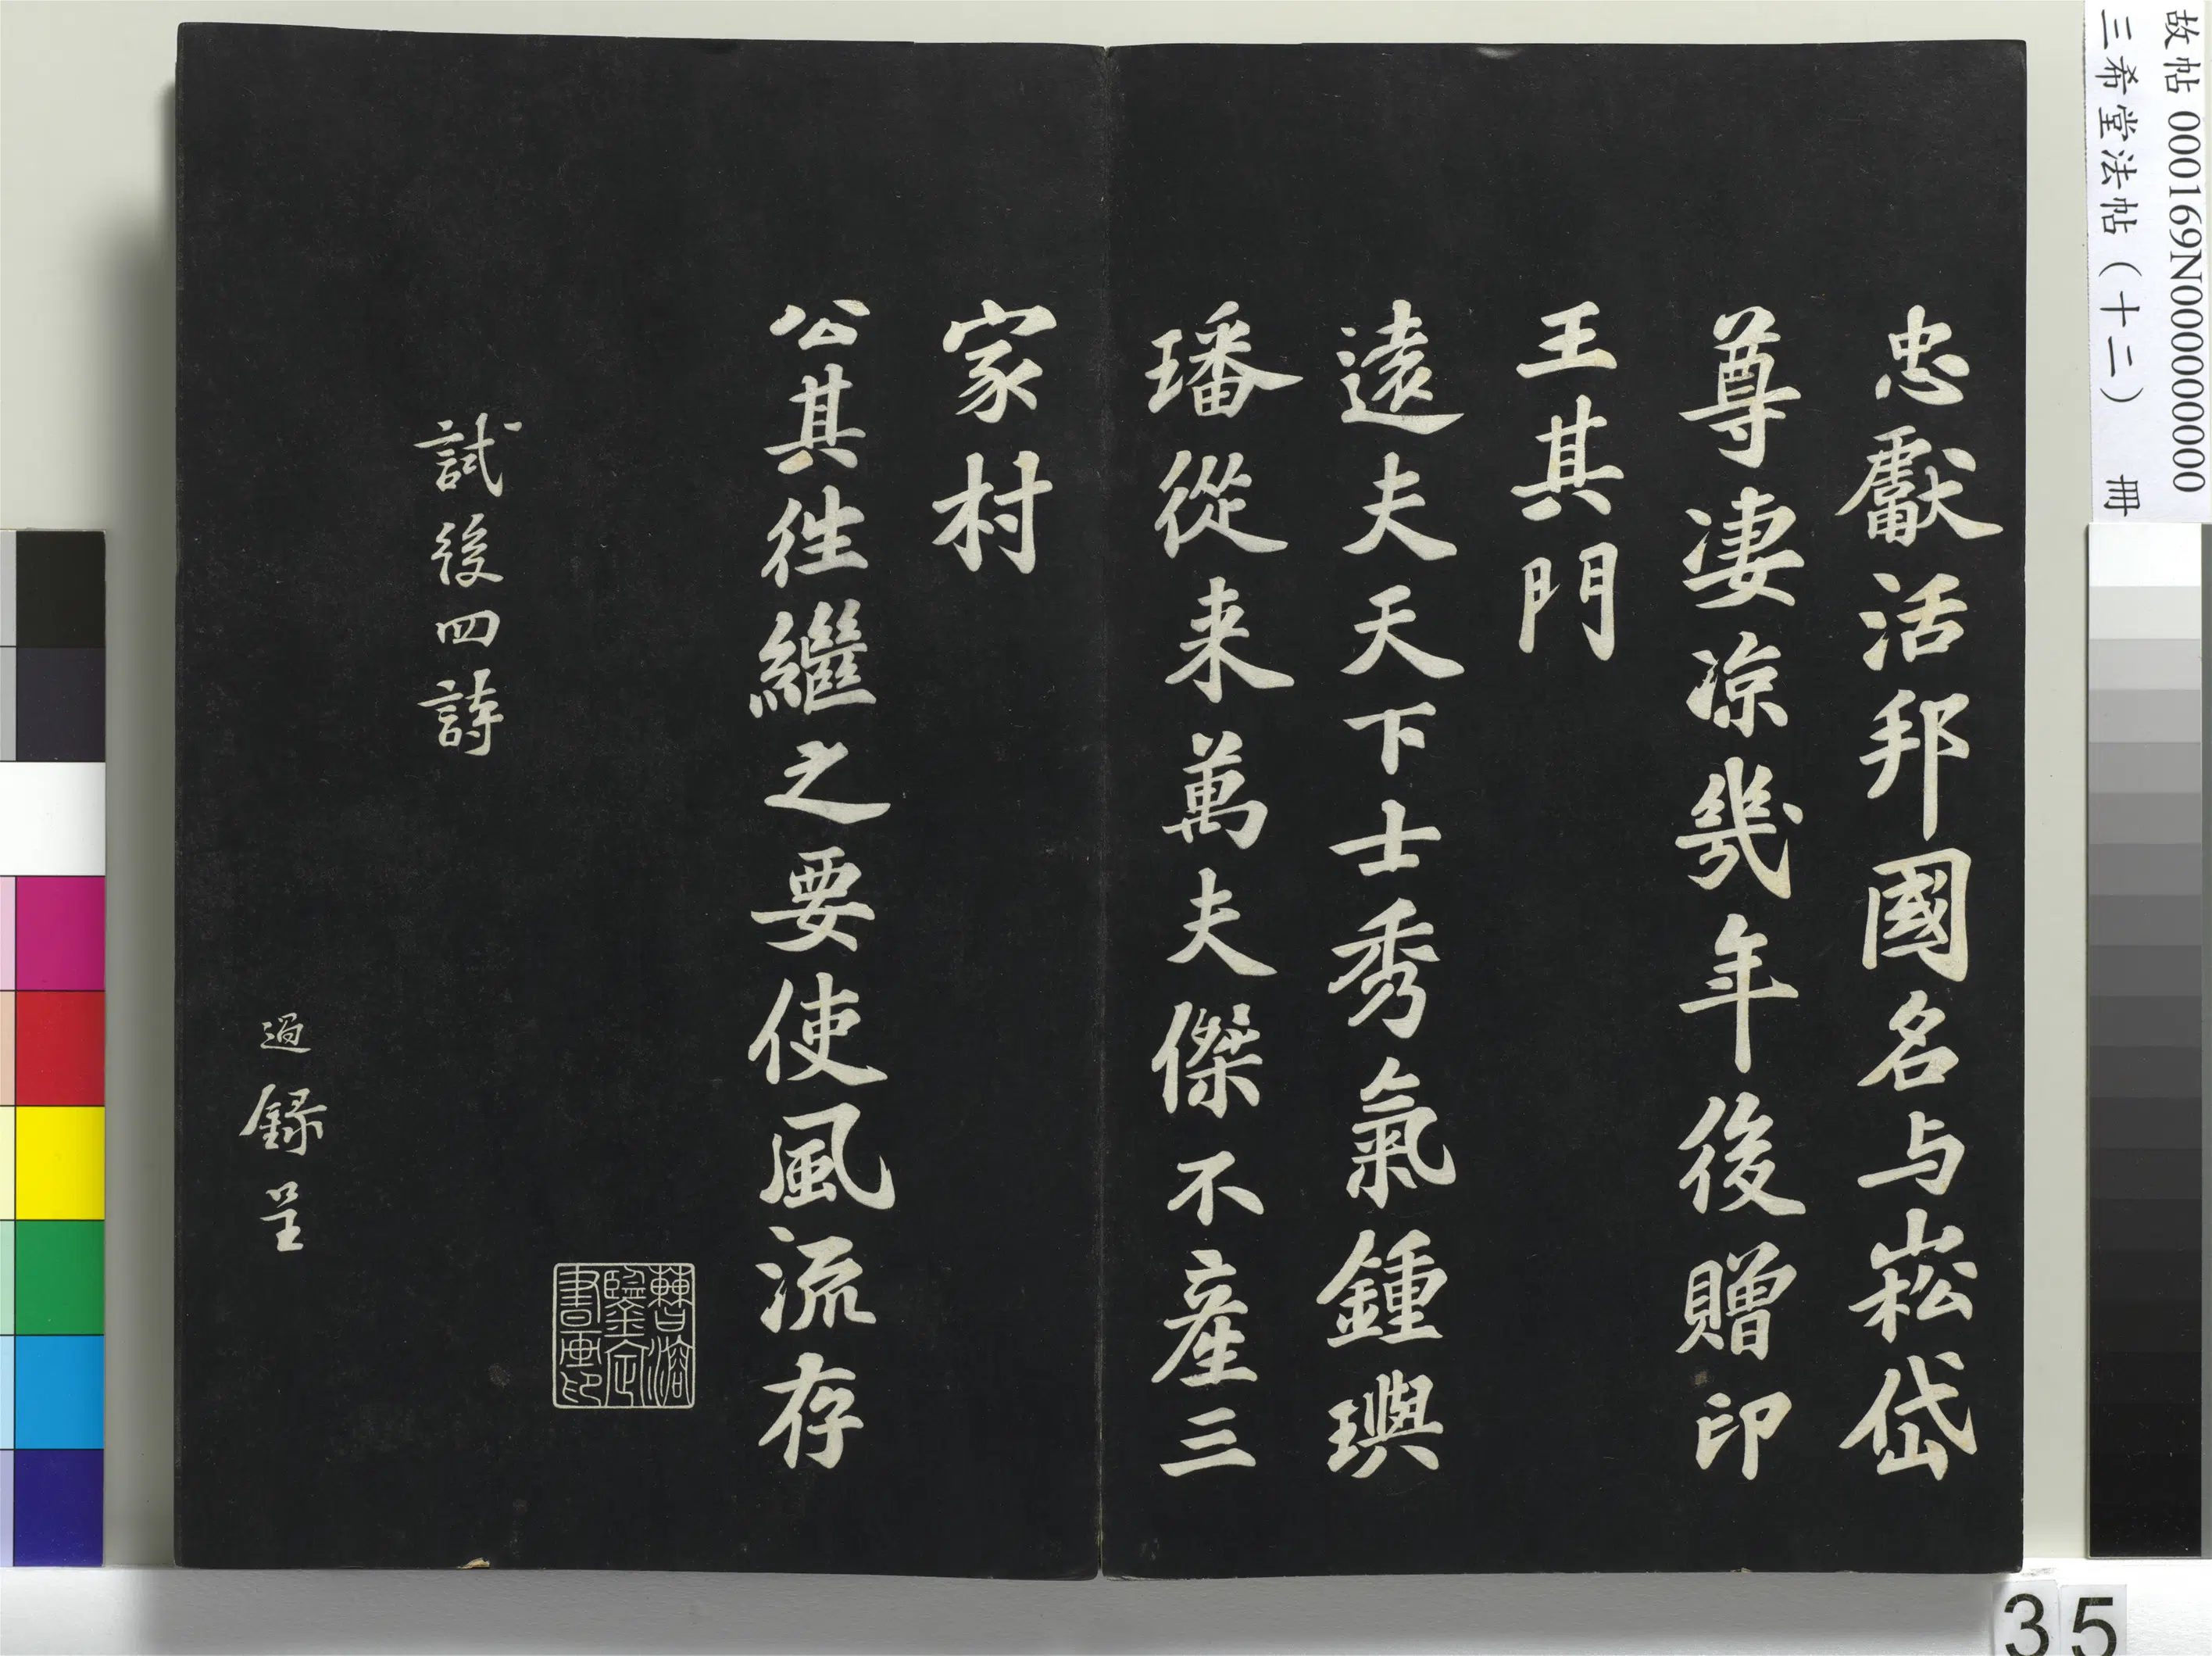 忠獻活邦國名与崧岱
尊淒凉幾年後贈印
王其門
遠夫天下士秀氣鍾璵
璠從来萬夫傑不產三
家村
公其徃繼之要使風流存
試後四詩
過錄呈
鑒定
書画印
故帖 000169N000000000
三希堂法帖(十二) 冊
35